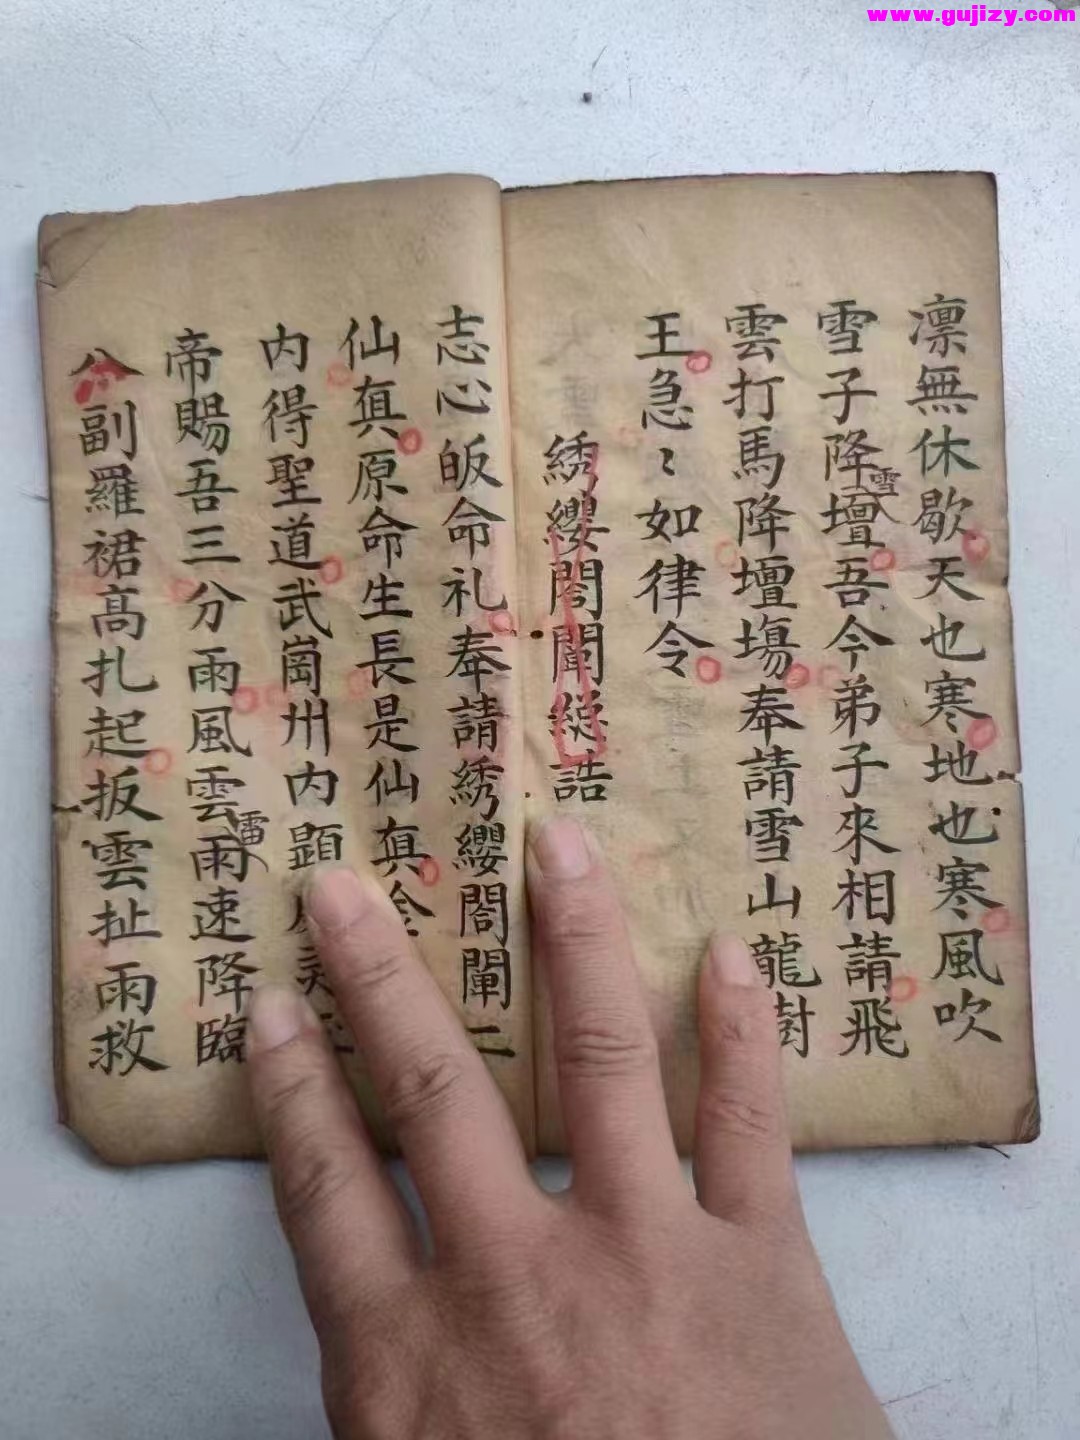 www.gujizy.com
凛無休歇天也寒地也寒風吹
雪子降壇吾今弟子來相請飛
雪
雲打馬降壇場奉請雪山龍樹
王急〻如律令
綉纓閣闡
誥
志心皈命礼奉請綉纓閣闡二
仙真原命生長是仙真金
内得聖道武崗州内顕
帝賜吾三分雨風雲雨速降臨
雷
八副羅裙高扎起扳雲扯雨救